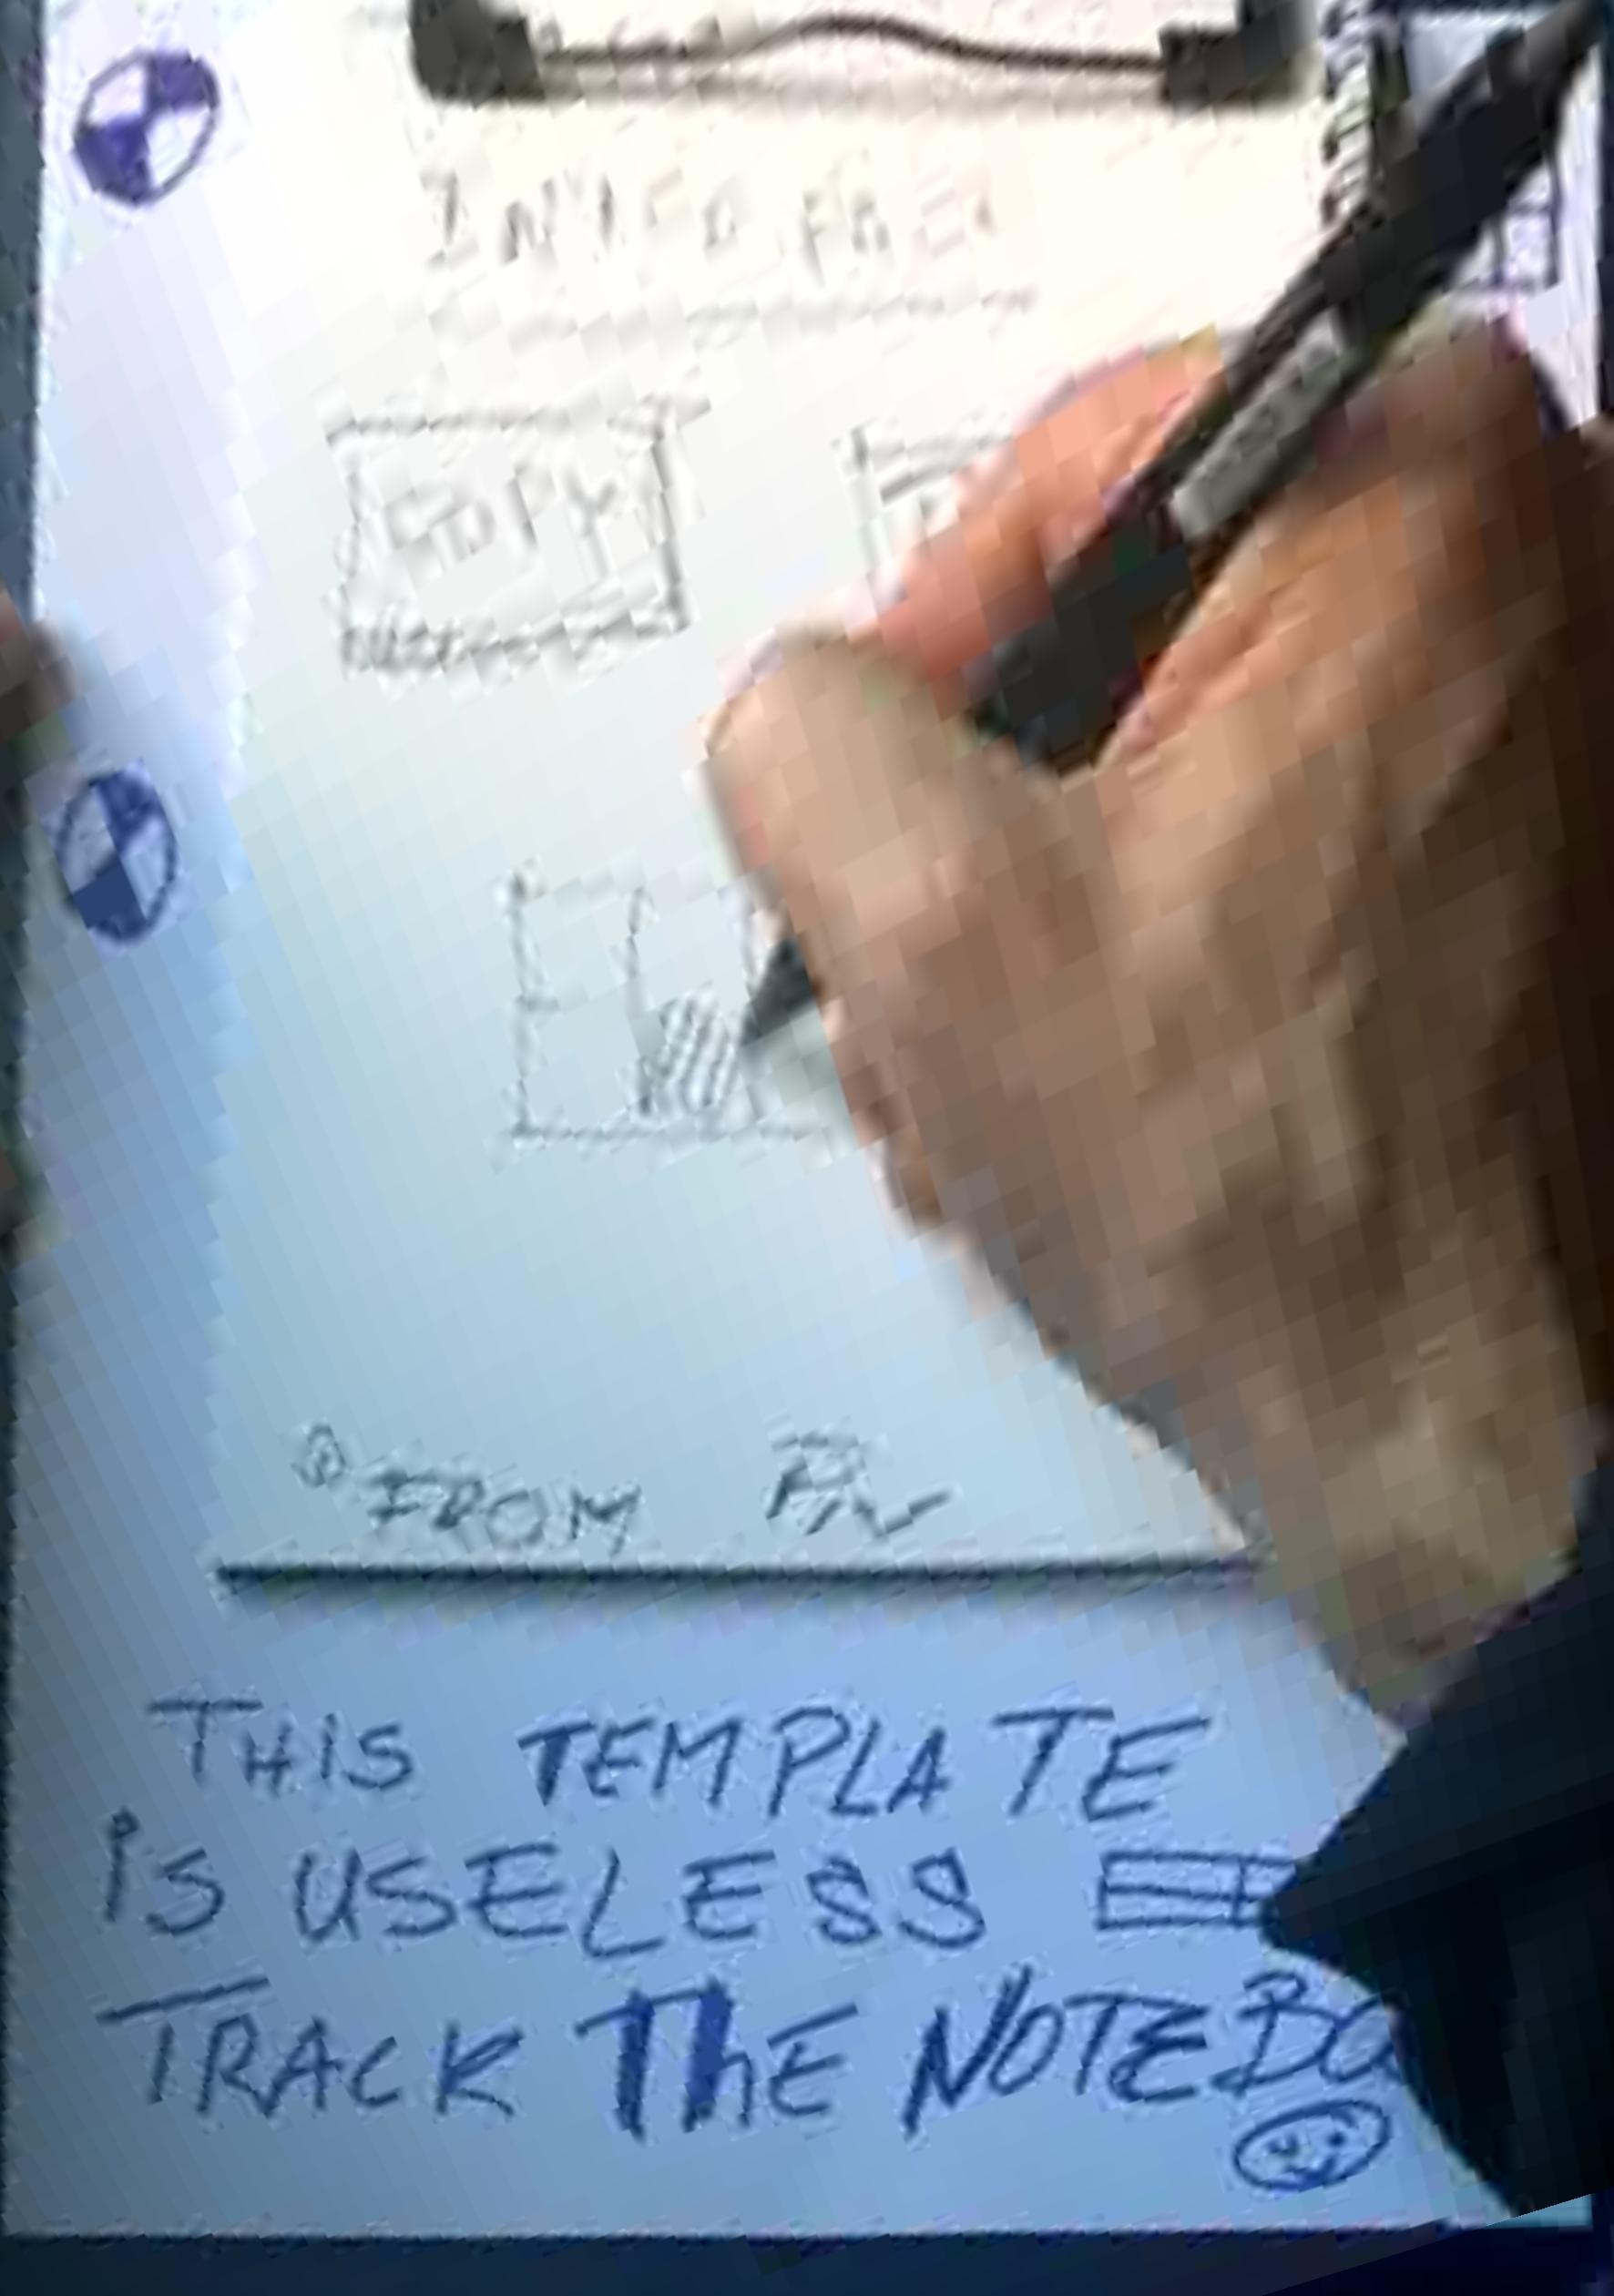 COPY
FROM
THIS TEMPLATE
iS USELESS
TRACK ThE NOTEBO